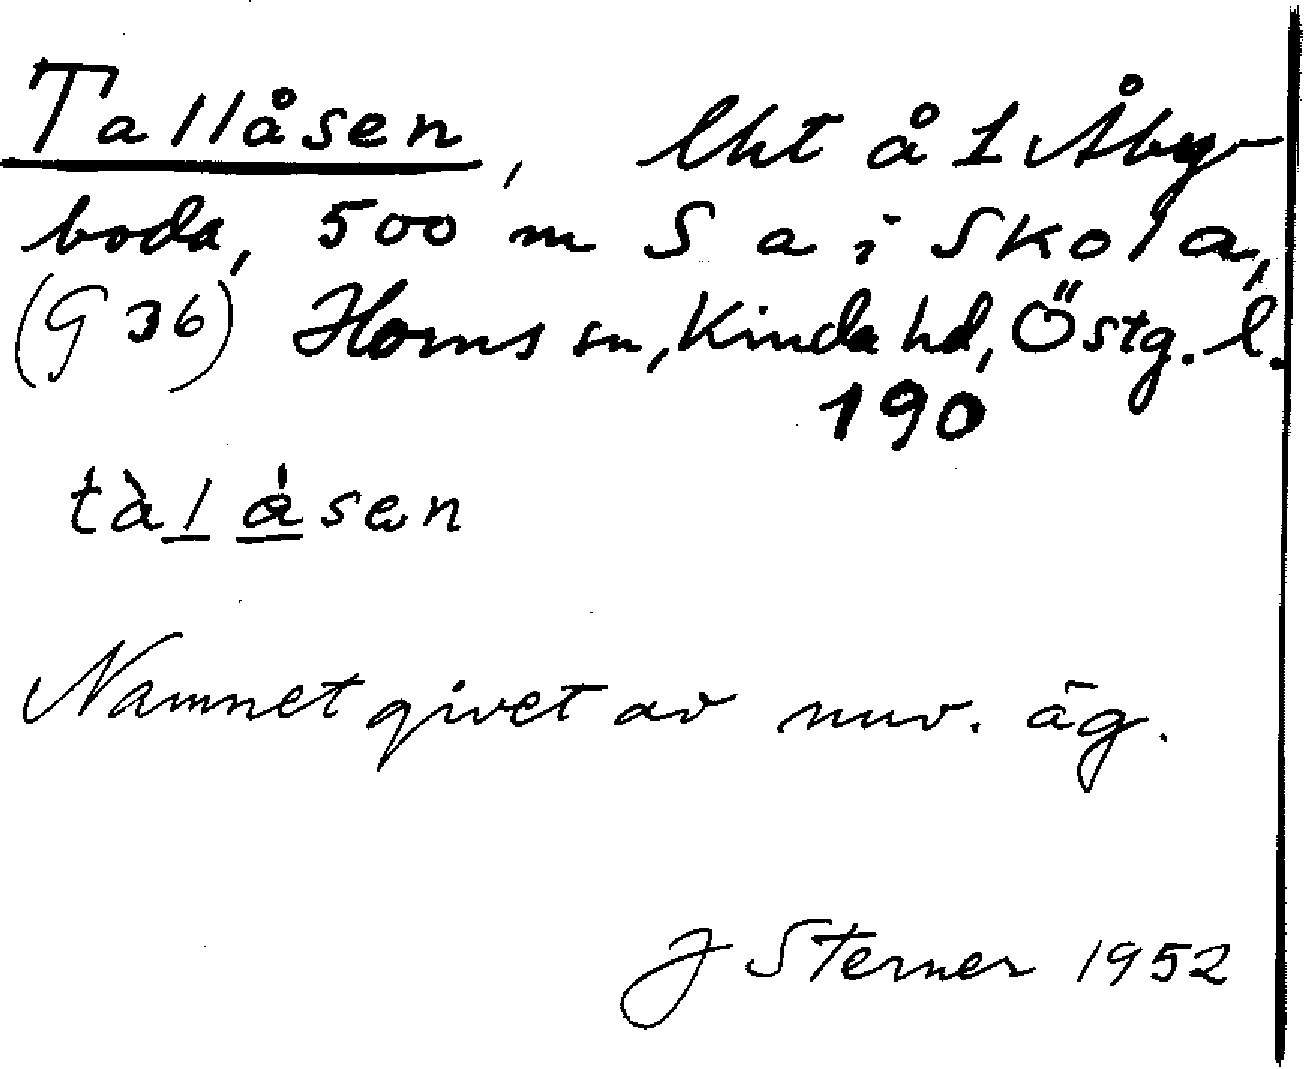 Tallåsen, lht å 1 Åby-
boda, 500 m S a i Skola,
(G 36) Horns sn, Kinda hd, Östg. l.
190
tàl ásen
Namnet givet av nuv. äg.
J Sterner 1952